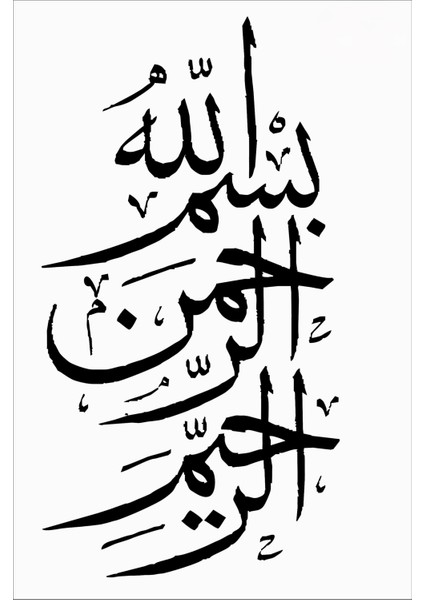 بِسْمِ اللّٰهُ
الرَّحْمٰنِ
الرَّحِيمِ